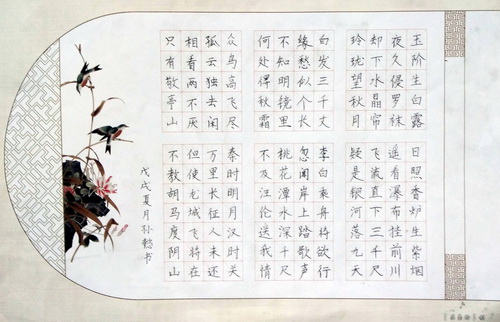 玉阶生白露
夜久侵罗袜
却下水晶帘
玲珑望秋月
白发三千丈
缘愁似个长
不知明镜里
何处得秋霜
众鸟高飞尽
孤云独去闲
相看两不厌
只有敬亭山
日照香炉生紫烟
遥看瀑布挂前川
飞流直下三千尺
疑是银河落九天
李白乘舟将欲行
忽闻岸上踏歌声
桃花潭水深千尺
不及汪伦送我情
秦时明月汉时关
万里长征人未还
但使龙城飞将在
不教胡马度阴山
戊戌夏月孙书